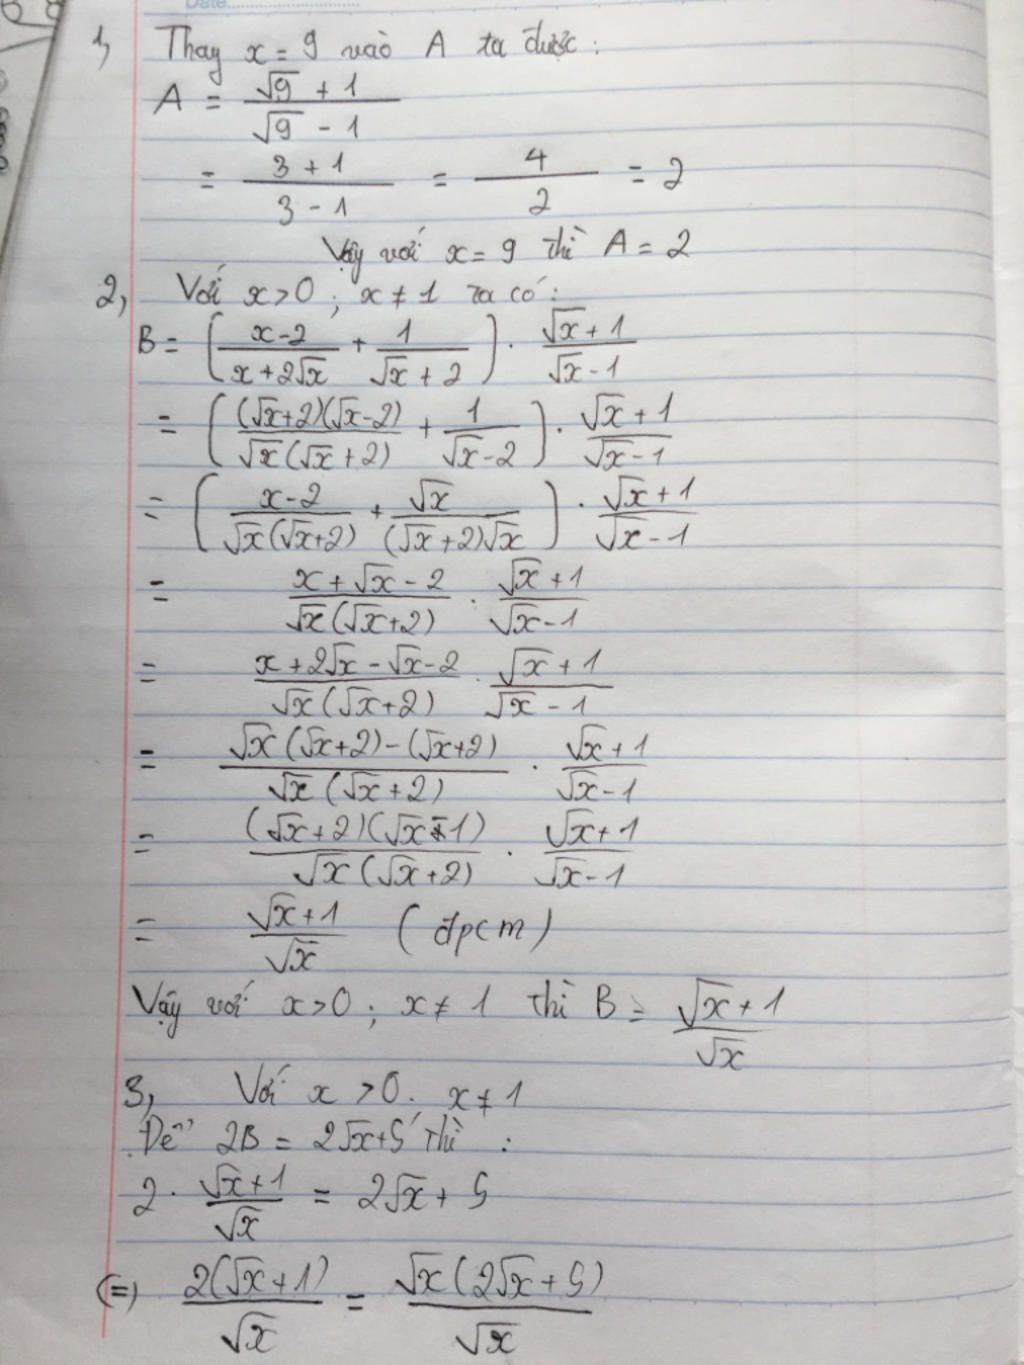 Date
1, Thay x = 9 vào A ta được :
A = (√9 + 1)/(√9 - 1)
= (3 + 1)/(3 - 1) = 4/2 = 2
Vậy với x = 9 thì A = 2
2, Với x > 0 ; x ≠ 1 ta có :
B = [(x-2)/(x+2√x) + 1/(√x+2)] · (√x+1)/(√x-1)
= [((√x+2)(√x-2))/(√x(√x+2)) + 1/(√x-2)] · (√x+1)/(√x-1)
= [(x-2)/(√x(√x+2)) + √x/((√x+2)√x)] · (√x+1)/(√x-1)
= (x+√x-2)/(√x(√x+2)) · (√x+1)/(√x-1)
= (x+2√x-√x-2)/(√x(√x+2)) · (√x+1)/(√x-1)
= (√x(√x+2)-(√x+2))/(√x(√x+2)) · (√x+1)/(√x-1)
= ((√x+2)(√x-1))/(√x(√x+2)) · (√x+1)/(√x-1)
= (√x+1)/√x (đpcm)
Vậy với x > 0 ; x ≠ 1 thì B = (√x+1)/√x
3, Với x > 0. x ≠ 1
Để 2B = 2√x+5 thì :
2 · (√x+1)/√x = 2√x + 5
(=) 2(√x+1)/√x = √x(2√x+5)/√x